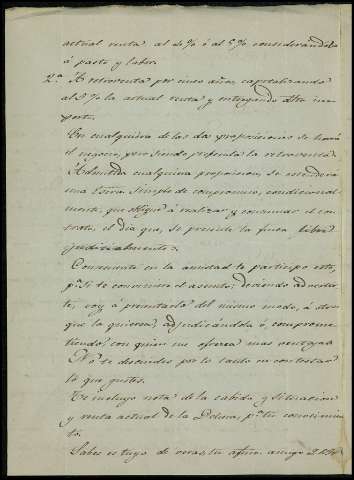 actual renta al 4% ó al 5% considerándola
á pasto y labor.
2.ª A retroventa por cinco años, capitalizando
al 3% la actual renta y entregando dho im-
porte.
En cualquiera de las dos proposiciones se hará
el negocio, pero siendo preferida la retroventa.
Admitida cualquiera proposicion, se estenderá
una Escra. simple de compromiso, condicional-
mente, que obligue á realizar y consumar el con-
trato, el dia que, se presente la finca libre
judicialmente.
Consecuente en la amistad te participo esto,
p.r si te conviniere el asunto; deviendo adverter-
te, voy á presentarlo del mismo modo, á don-
que la quieran adjudicándola ó, comprome-
tiendo? con quien me ofrezca mas ventajas
No te descuides por lo tanto en contestar
lo que gustes.
Te incluyo nota de la cabida y situacion
y renta actual de la Dehesa, p.a tu conocimien-
to.
Sabes es tuyo de veras, tu afmo. amigo